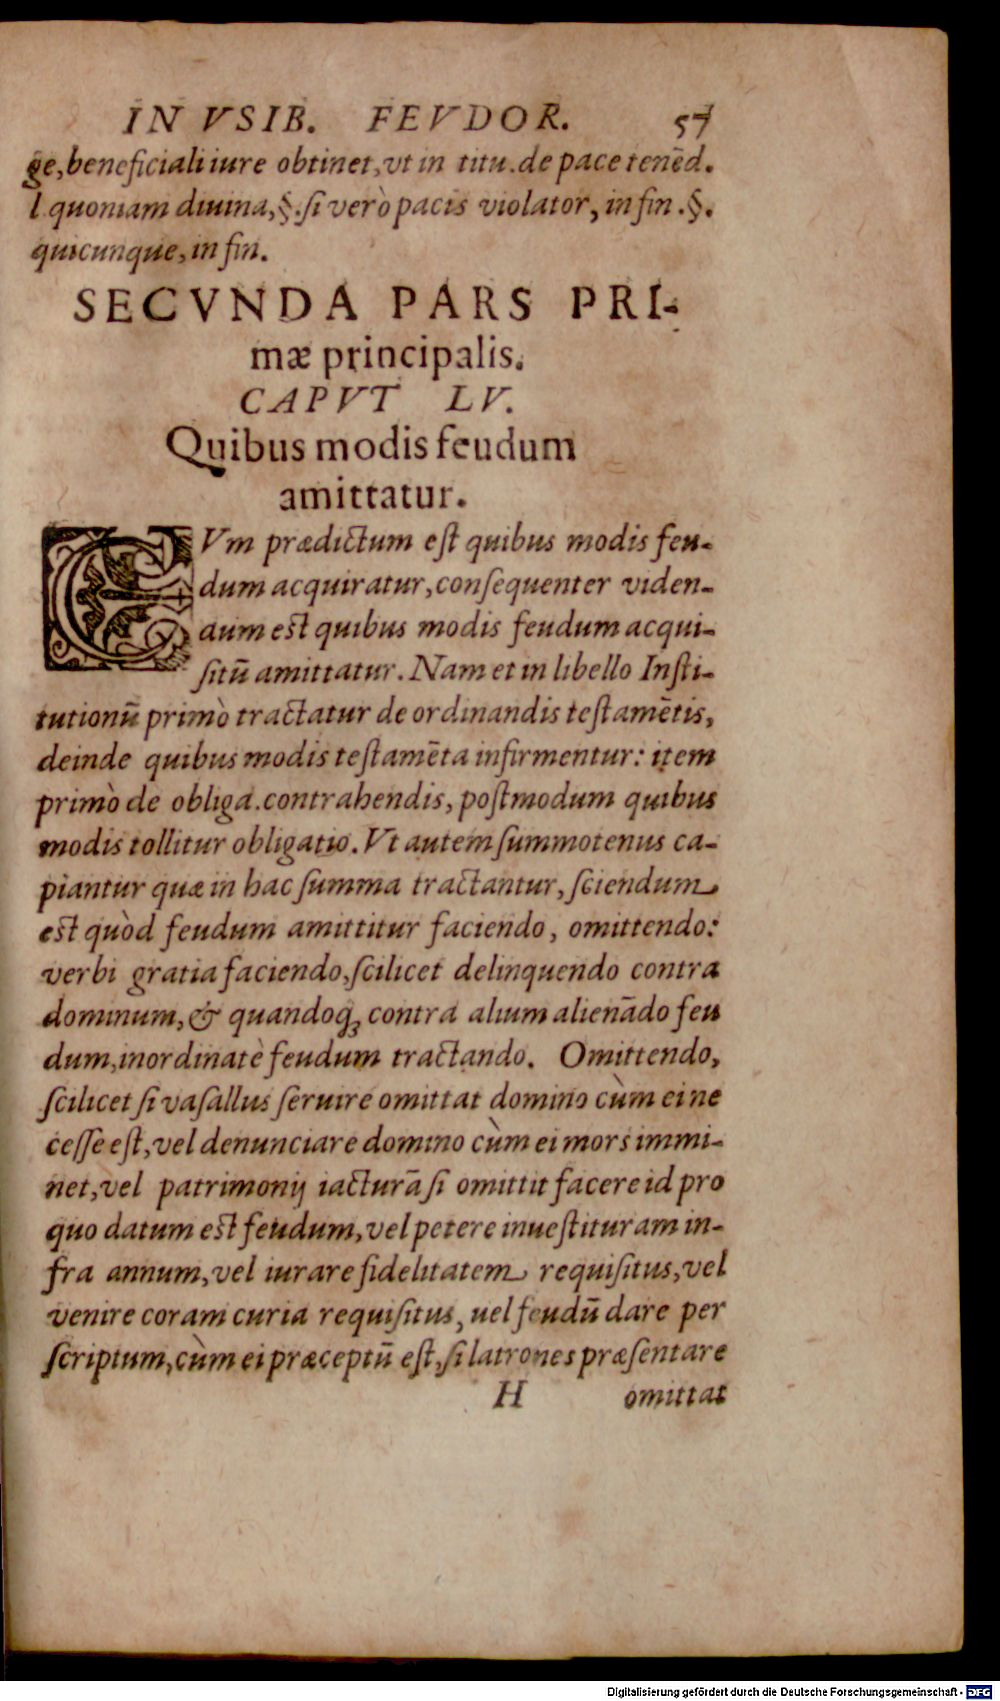 IN VSIB. FEVDOR. 57
ge, beneficiali iure obtinet, vt in titu. de pace tenẽd.
l. quoniam diuina, §. si verò pacis violator, in fin. §.
quicunque, in fin.
SECVNDA PARS PRI-
mæ principalis.
CAPVT LV.
Quibus modis feudum
amittatur.
CVm prædictum est quibus modis feu-
dum acquiratur, consequenter viden-
dum est quibus modis feudum acqui-
sitũ amittatur. Nam et in libello Insti-
tutionũ primò tractatur de ordinandis testamẽtis,
deinde quibus modis testamẽta infirmentur: item
primò de obliga. contrahendis, postmodum quibus
modis tollitur obligatio. Vt autem summotenus ca-
piantur quæ in hac summa tractantur, sciendum
est quòd feudum amittitur faciendo, omittendo:
verbi gratia faciendo, scilicet delinquendo contra
dominum, & quandoq; contra alium alienãdo feu
dum, inordinatè feudum tractando. Omittendo,
scilicet si vasallus seruire omittat domino cùm ei ne
cesse est, vel denunciare domino cùm ei mors immi-
net, vel patrimonij iacturã si omittit facere id pro
quo datum est feudum, vel petere inuestituram in-
fra annum, vel iurare fidelitatem requisitus, vel
venire coram curia requisitus, uel feudũ dare per
scriptum, cùm ei præceptũ est, si latrones præsentare
H omittat
Digitalisierung gefördert durch die Deutsche Forschungsgemeinschaft - DFG